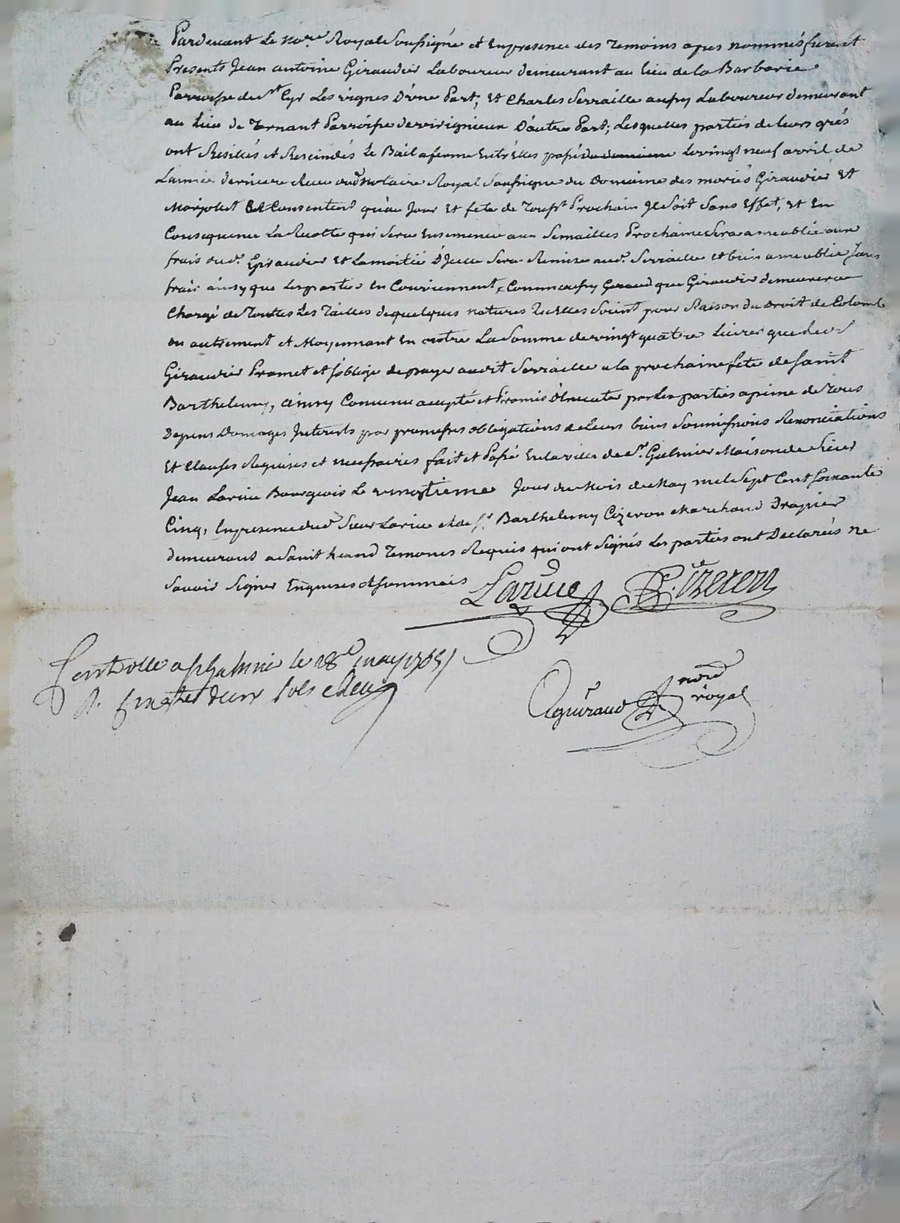 Pardevant Le no.re Royal Soussigné et En presence des Temoins apres nommés furent
Presents Jean antoine Giraudier Laboureur demeurant au lieu de la Barbarie
Parroisse de St Cyr Les vignes D'une Part, Et Charles Serraille aussy Laboureur demeurant
au Lieu de Parroisse de D'autre Part, Lesquelles parties de leurs grés
ont Resiliés et Rescindés Le Bail a ferme Entr'Elles passé Le vingt neuf avril de
L'année derniere Receu dud Notaire Royal Soussigne du Domaine des mariés Giraudier Et
Et Consentent qu'au Jour Et fete de Touss.t Prochain Je Soit Sans Effet, Et En
Consequence La qui Sera Ensemencée aux Semailles Prochaines Sera aux
frais dud. Giraudier Et La moitié D'Jcelle Sera Remise aud. Serraille Sans
frais ainsy que Les parties En Conviennent, Comm'aussy que Giraudier demeurera
Chargé de Toutes Les Tailles de quelques natures qu'Elles Soint pour Raison du Droit de
ou autrement et Moyennant En outre La Somme de vingt quatre Livres que Led
Giraudier Promet et s'oblige de payer audit Serraille a la prochaine fete de Saint
Barthelemy, ainsy Convenu accepté et Promis D'Executer par Les parties a peine de Tous
Depens Domages Jnterests par obligations de Leurs biens Soumissions Renonciations
Et Clauses Requises et necessaires fait et Passé En la ville de St. Galmier Maison de Sieur
Jean Larive Bourgeois Le vingtieme Jour du Mois de May mil Sept Cent Soixante
Cinq, En presence dud Sieur Larive et de Sr. Barthelemy Cizeron Marchand Drapier
demeurans a Saint Temoins Requis qui ont Signés Les parties ont Declarées ne
Savoir Signer Enquises et Sommées
Larive B. Cizeron
Controlle a St Galmier le 28e may 1765
R. Sols
Aguiraud no.re royal